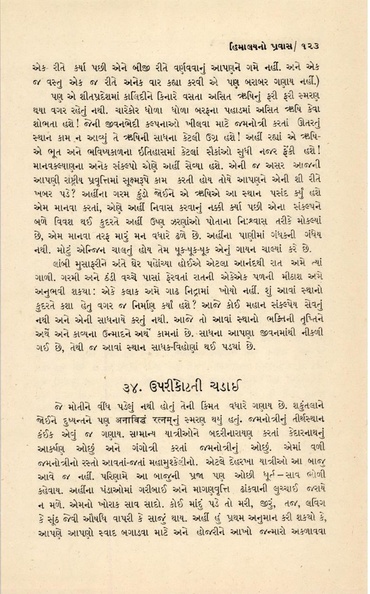 હિમાલયનો પ્રવાસ/ ૧૨૩
એક રીતે કર્યા પછી એને બીજી રીતે વર્ણવવાનું આપણને ગમે નહીં. અને એક
જ વસ્તુ એક જ રીતે અનેક વાર કહ્યા કરવી એ પણ બરાબર ગણાય નહીં.)
પણ એ શીતપ્રદેશમાં કાલિંદીને કિનારે વસતા અસિત ઋષિનું ફરી ફરી સ્મરણ
થયા વગર રહેતું નથી. ચારેકોર ધોળા ધોળા બરફના પહાડમાં અસિત ઋષિ કેવા
શોભતા હશે! જેની જીવનભેદી કલ્પનાઓ ખીલવા માટે જમનોત્રી કરતાં ઊતરતું
સ્થાન કામ ન આવ્યું તે ઋષિની સાધના કેટલી ઉગ્ર હશે! અહીં રહ્યાં એ ઋષિ-
એ ભૂત અને ભવિષ્યકાળના ઈતિહાસમાં કેટલાં સૈકાંઓ સુધી નજર ફેંકી હશે!
માનવકલ્યાણના અનેક સંકલ્પો એણે અહીં સેવ્યા હશે. એની જ અસર આજની
આપણી રાષ્ટ્રીય પ્રવૃત્તિમાં સૂક્ષ્મરૂપે કામ કરતી હોય તોયે આપણને એની શી રીતે
ખબર પડે? અહીંના ગરમ કુંડો જોઈને એ ઋષિએ આ સ્થાન પસંદ કર્યું હશે
એમ માનવા કરતાં, એણે અહીં નિવાસ કરવાનું નક્કી કર્યા પછી એના સંકલ્પને
બળે વિવશ થઈ કુદરતે અહીં ઉષ્ણ ઝરણાંઓ પોતાના નિઃશ્વાસ તરીકે મોકલ્યાં
છે, એમ માનવા તરફ મારું મન વધારે ઢળે છે. અહીંના પાણીમાં ગંધકની ગંધેય
નથી. મોટું એન્જિન ચાલતું હોય તેમ ધૂક-ધૂક-ધૂક એનું ગાયન ચાલ્યાં કરે છે.
લાંબી મુસાફરીને અંતે ઘેર પહોંચ્યા હોઈએ એટલા આનંદથી રાત અમે ત્યાં
ગાળી. ગરમી અને ઠંડી વચ્ચે પાસાં ફેરવતાં રાતની એકેએક પળની મીઠાશ અમે
અનુભવી શક્યા: એકે કલાક અમે ગાઢ નિદ્રામાં ખોયો નહીં. શું આવાં સ્થાનો
કુદરતે કશા હેતુ વગર જ નિર્માણ કર્યાં હશે? આજે કોઈ મહાન સંકલ્પેય સેવતું
નથી અને એની સાધનાયે કરતું નથી. આજે તો આવાં સ્થાનો ભક્તિની તૃપ્તિને
અર્થે અને કાવ્યના ઉન્માદને અર્થે કામનાં છે. સાધના આપણા જીવનમાંથી નીકળી
ગઈ છે, તેથી જ આવાં સ્થાન સાધક-વિહોણાં થઈ પડ્યાં છે.
૩૪. ઉપરીકોટની ચડાઈ
જે મોતીને વીંધ પડેલું નથી હોતું તેની કિંમત વધારે ગણાય છે. શકુંતલાને
જોઈને દુષ્યન્તને પણ अनाविद्धं रत्नम्‌નું સ્મરણ થયું હતું. જમનોત્રીનું તીર્થસ્થાન
કંઈક એવું જ ગણાય. સામાન્ય યાત્રીઓને બદરીનારાયણ કરતાં કેદારનાથનું
આકર્ષણ ઓછું અને ગંગોત્રી કરતાં જમનોત્રીનું ઓછું. એમાં વળી
જમનોત્રીનો રસ્તો આવતાંજતાં મહામુશ્કેલીનો. એટલે દેહરખા યાત્રીઓ આ બાજુ
આવે જ નહીં. પરિણામે આ બાજુની પ્રજા પણ ઓછી ધૂર્ત – સાવ ભોળી
કહેવાય. અહીંના પંડાઓમાં ગરીબાઈ અને માગણવૃત્તિ ઢાંકવાની લુચ્ચાઈ જરાયે
ન મળે. એમનો ખોરાક સાવ સાદો. કોઈ માંદું પડે તો મરી, જીરું, તજ, લવિંગ
કે સૂંઠ જેવી ઔષધિ વાપરી કે સાજું થાય. અહીં હું પ્રથમ અનુમાન કરી શક્યો કે,
આપણે આપણો સ્વાદ બગાડવા માટે અને હોજરીને આખો જન્મારો અકળાવવા